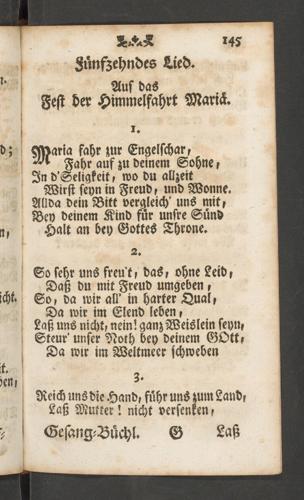 145
Fünfzehndes Lied.
Auf das
Fest der Himmelfahrt Mariä.
1.
Maria fahr zur Engelschar,
Fahr auf zu deinem Sohne,
In d'Seligkeit, wo du allzeit
Wirst seyn in Freud, und Wonne.
Allda dein Bitt vergleich' uns mit,
Bey deinem Kind für unsre Sünd
Halt an bey Gottes Throne.
2.
So sehr uns freu't, das, ohne Leid,
Daß du mit Freud umgeben,
So, da wir all' in harter Qual,
Da wir im Elend leben,
Laß uns nicht, nein! ganz Weislein seyn,
Steur' unser Noth bey deinem GOtt,
Da wir im Weltmeer schweben
3.
Reich uns die Hand, führ uns zum Land,
Laß Mutter! nicht versenken,
Gesang-Büchl. G Laß